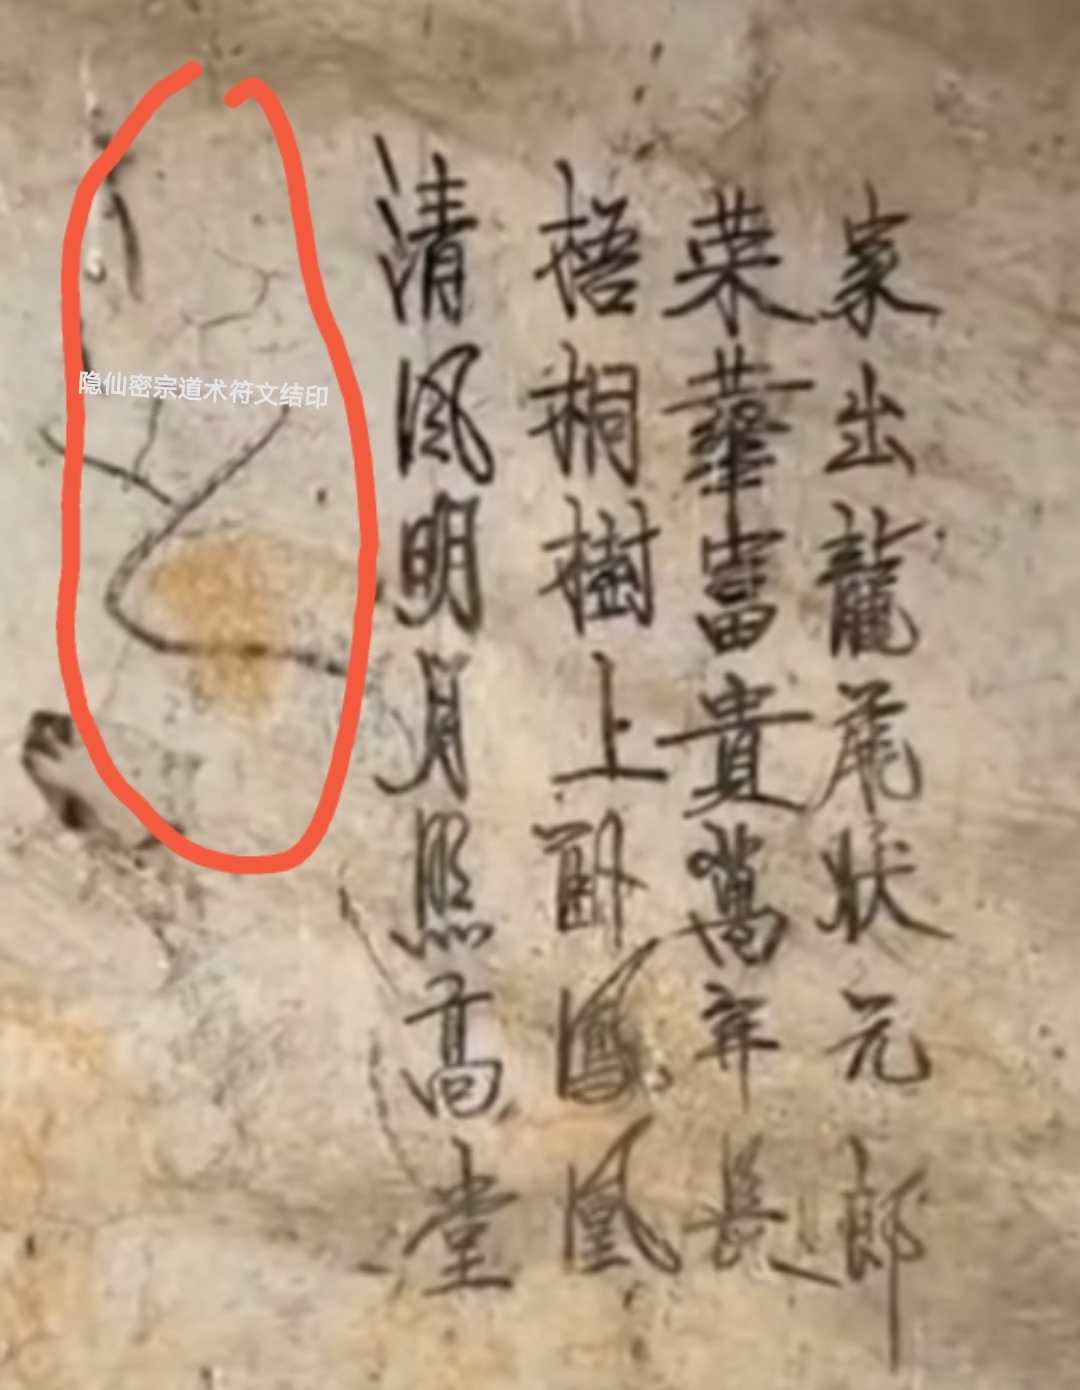 家出龍尾狀元郎
荣華富貴萬年長
梧桐樹上卧鳳凰
清風明月照高堂
隐仙密宗道术符文结印